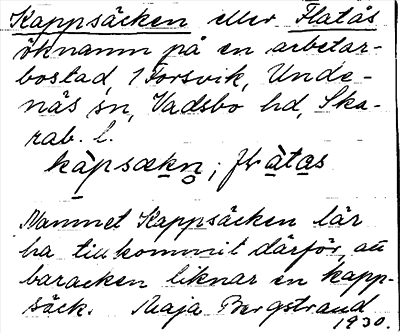 Kappsäcken eller Flatås
öknamn på en arbetar-
bostad, i Forsvik, Unde-
näs sn, Vadsbo hd, Ska-
rab. l.
kàpsækn; flàtas
Namnet Kappsäcken lär
ha tillkommit därför, att
baracken liknar en kapp-
säck. Maja Bergstrand
1930.